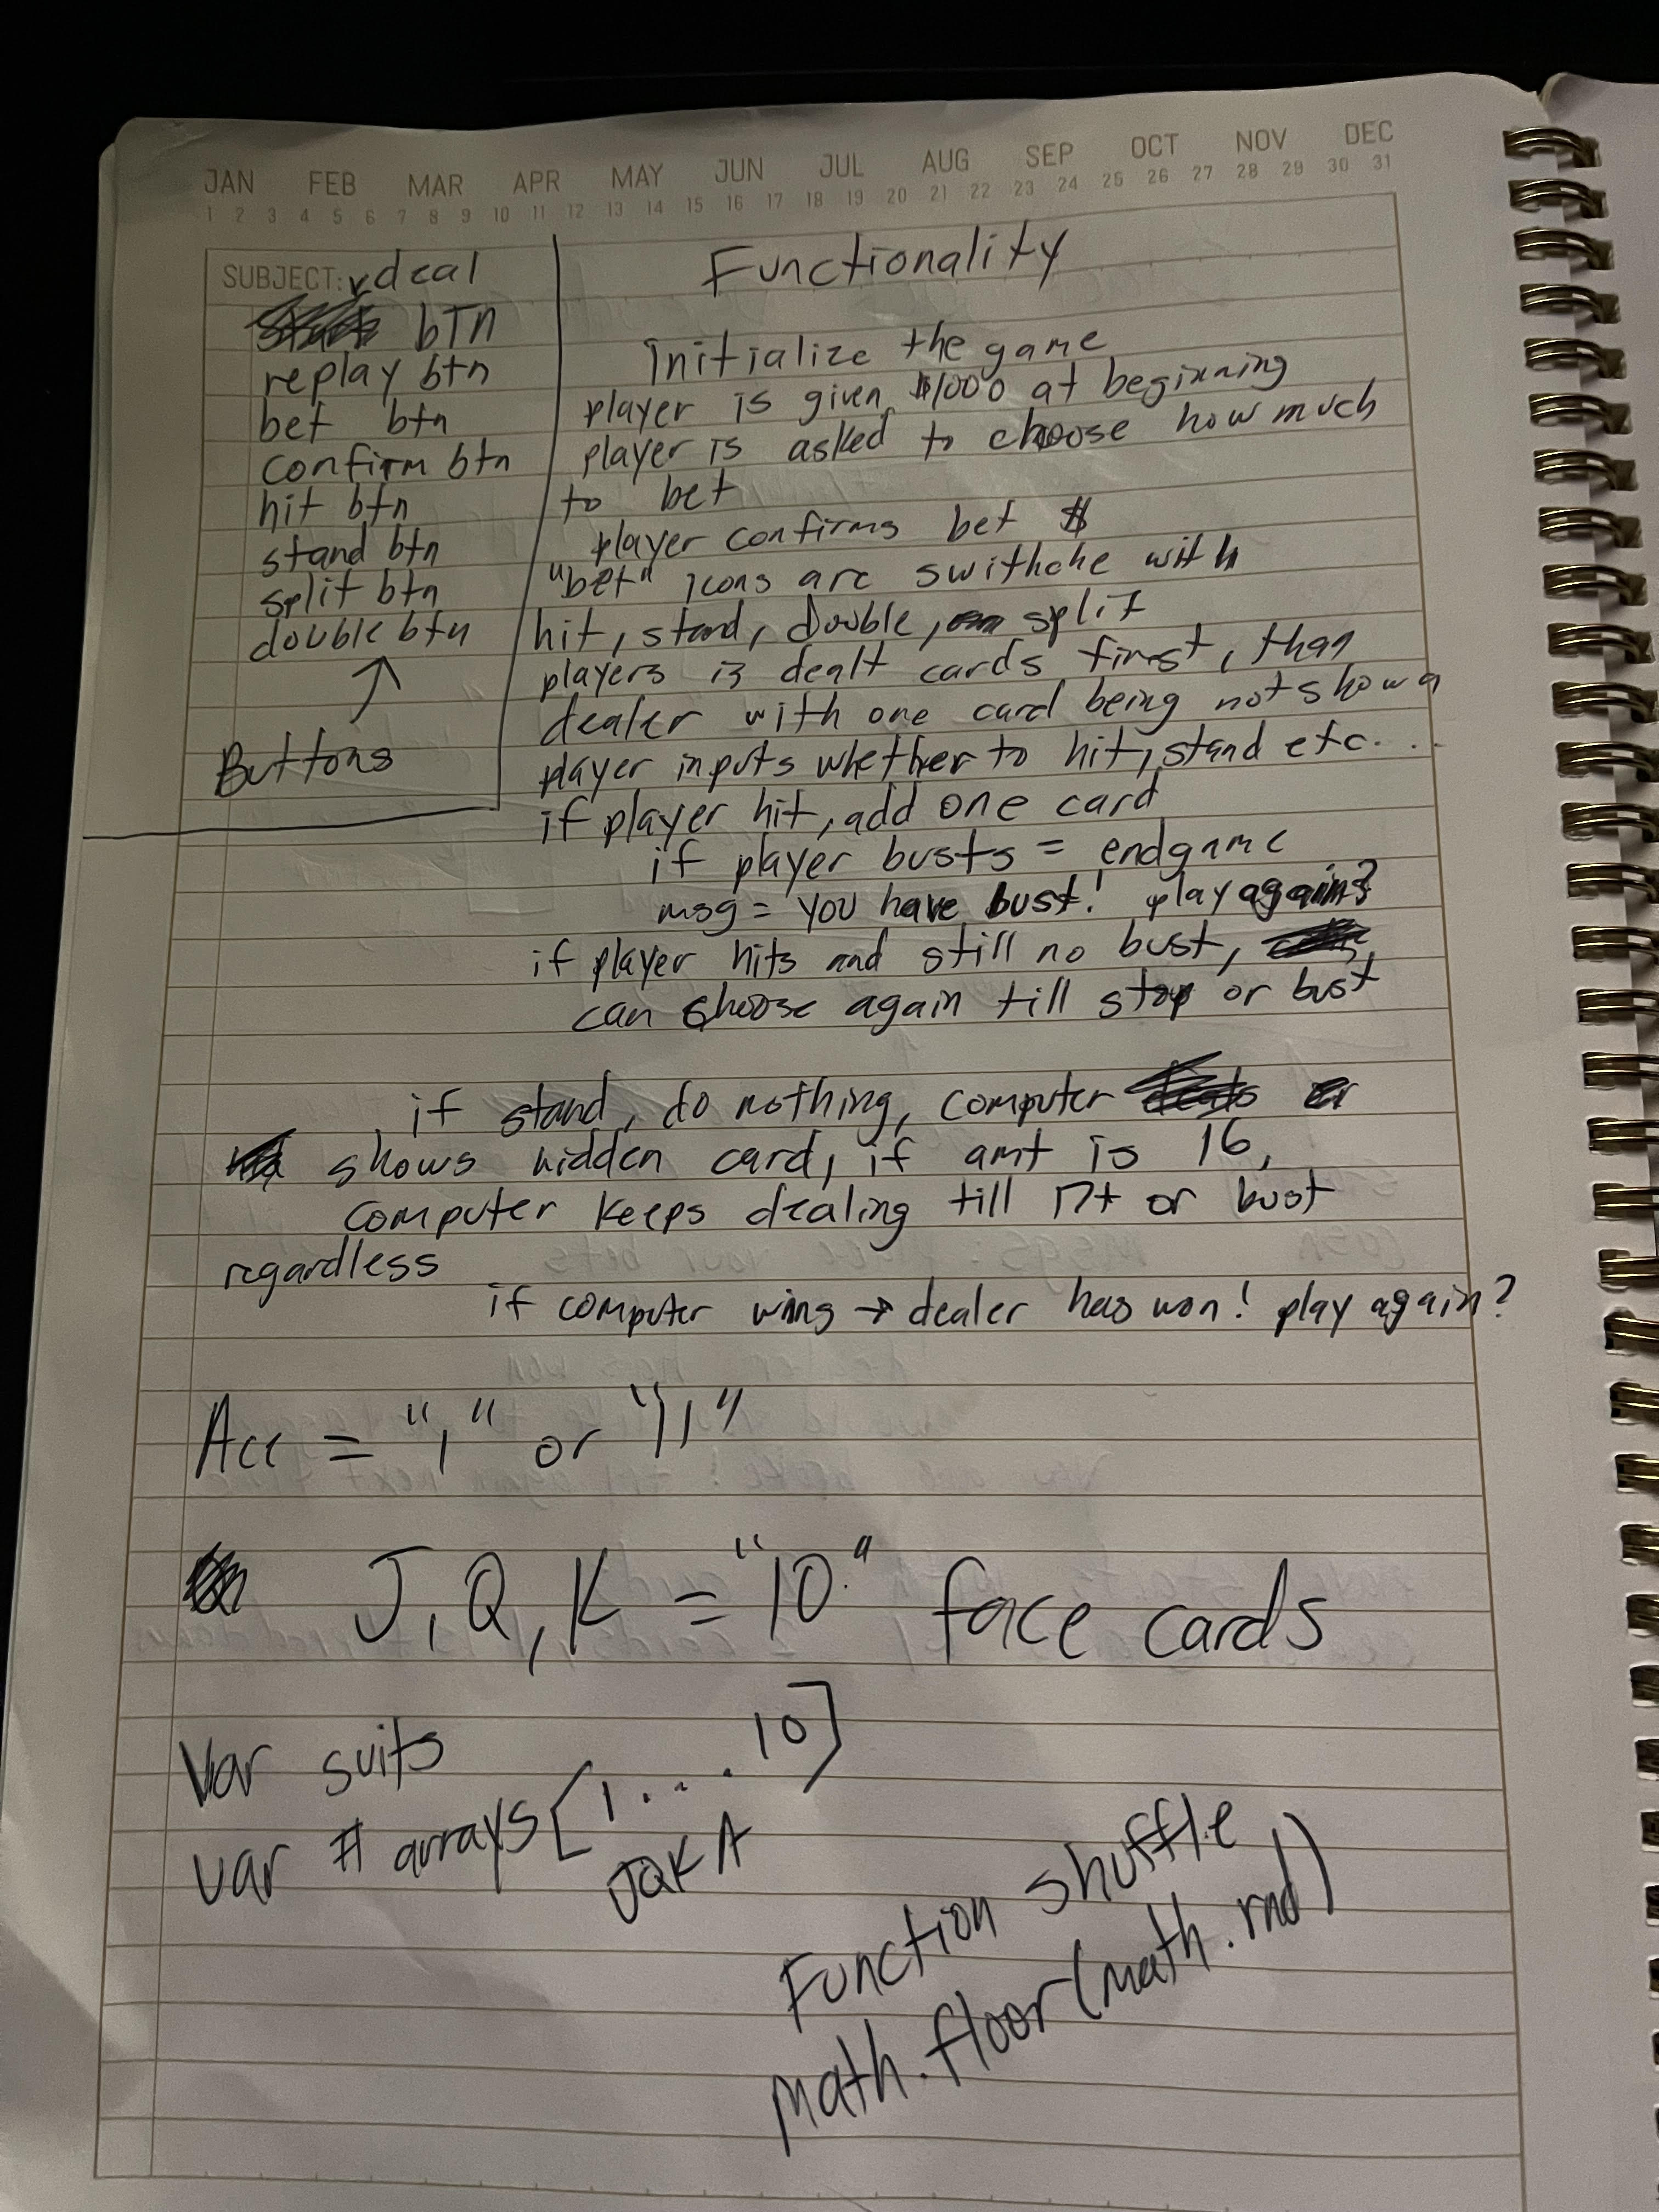 JAN FEB MAR APR MAY JUN JUL AUG SEP OCT NOV DEC
1 2 3 4 5 6 7 8 9 10 11 12 13 14 15 16 17 18 19 20 21 22 23 24 25 26 27 28 29 30 31
SUBJECT: deal
btn
replay btn
bet btn
confirm btn
hit btn
stand btn
split btn
double btn
Buttons
Functionality
initialize the game
player is given $1000 at beginning
player is asked to choose how much
to bet
player confirms bet $
"bet" icons are swithche with
hit, stand, double, split
players is dealt cards first, than
dealer with one card being not shown
player inputs whether to hit, stand etc...
if player hit, add one card
if player busts = endgame
msg = you have bust! play again?
if player hits and still no bust,
can choose again till stop or bust
if stand, do nothing, computer
shows hidden card, if amt is 16,
computer keeps dealing till 17+ or bust
regardless
if computer wins → dealer has won! play again?
Ace = "1" or "11"
J, Q, K = "10" face cards
Var suits
var # arrays [1....10]
JQKA
Function shuffle
math.floor(math.rnd)